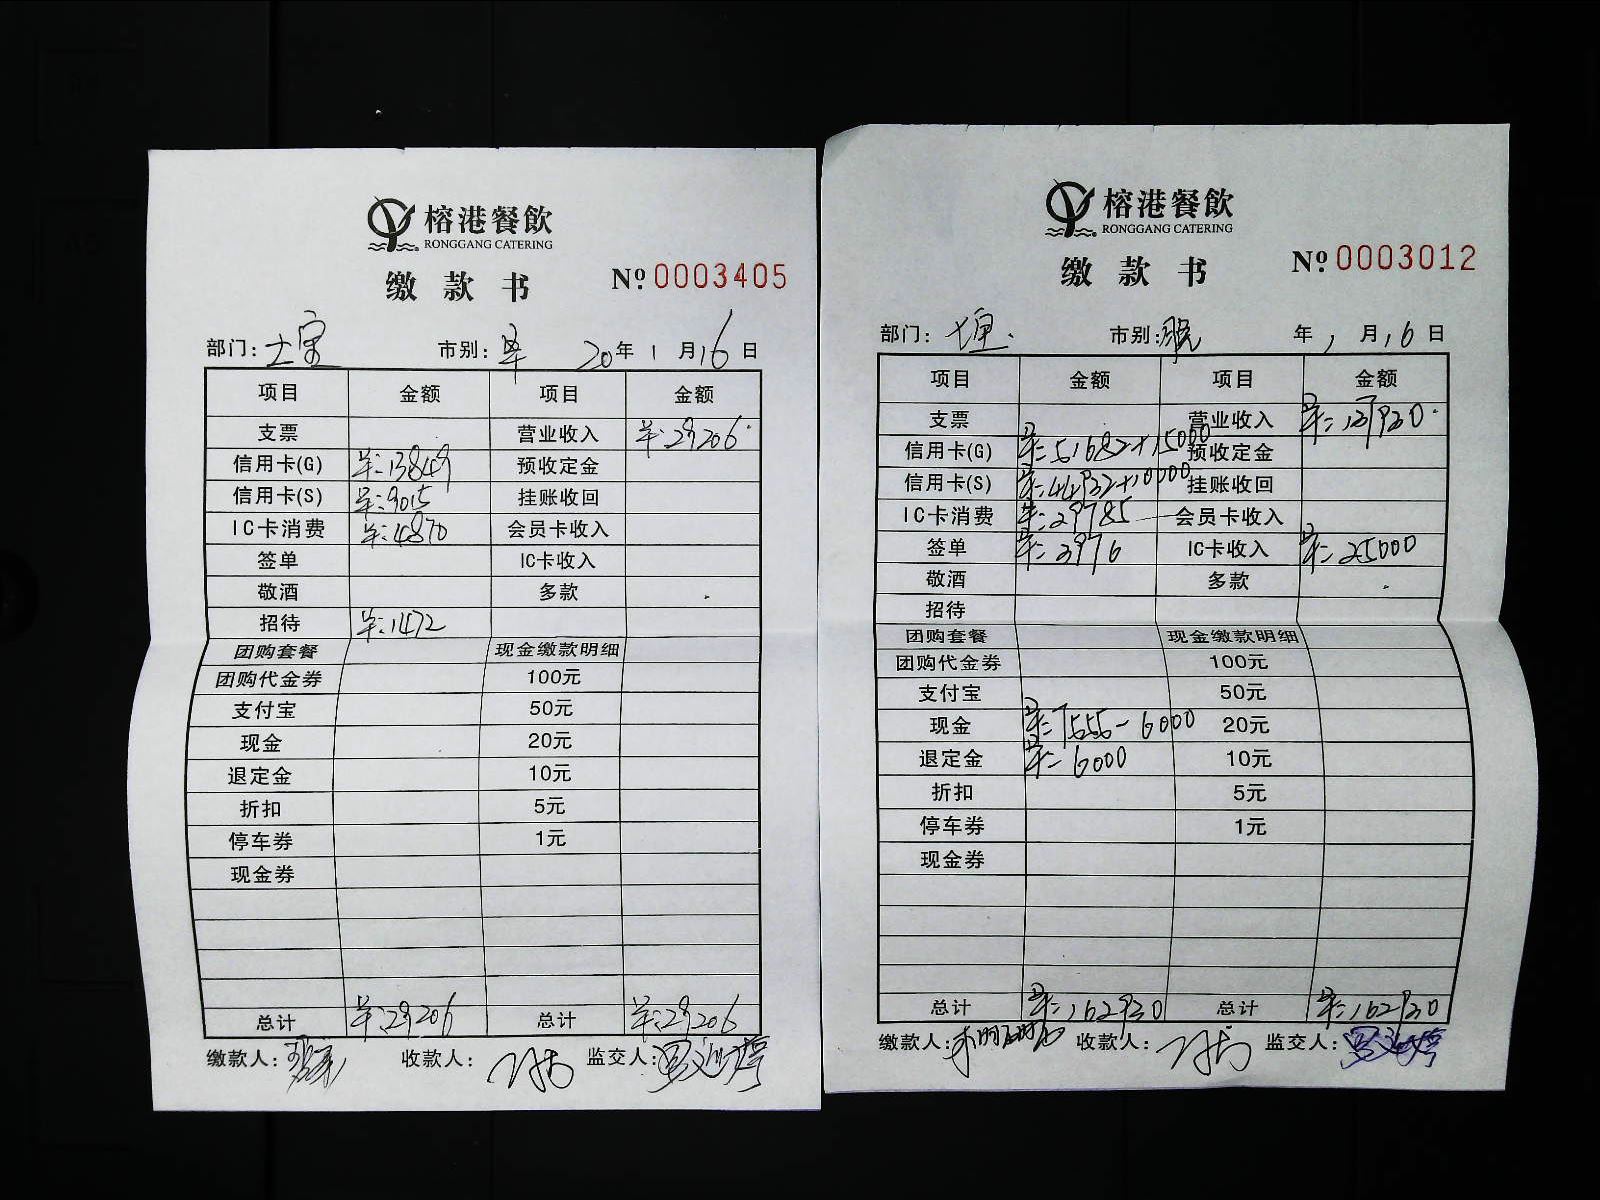 榕港餐飲
RONGGANG CATERING
缴款书 № 0003405
部门: 市别: 早 20年1月16日
项目 金额 项目 金额
支票 营业收入 ¥:29206
信用卡(G) ¥:13849 预收定金
信用卡(S) ¥:9015 挂账收回
IC卡消费 ¥:4870 会员卡收入
签单 IC卡收入
敬酒 多款
招待 ¥:1472
团购套餐 现金缴款明细
团购代金券 100元
支付宝 50元
现金 20元
退定金 10元
折扣 5元
停车券 1元
现金券
总计 ¥:29206 总计 ¥:29206
缴款人: 收款人: 监交人:
榕港餐飲
RONGGANG CATERING
缴款书 № 0003012
部门: 市别: 晚 年1月16日
项目 金额 项目 金额
支票 营业收入 ¥:137930
信用卡(G) ¥:51682+15000 预收定金
信用卡(S) ¥:44932+10000 挂账收回
IC卡消费 ¥:29785 会员卡收入
签单 ¥:3976 IC卡收入 ¥:25000
敬酒 多款
招待
团购套餐 现金缴款明细
团购代金券 100元
支付宝 50元
现金 ¥:7555-6000 20元
退定金 ¥:6000 10元
折扣 5元
停车券 1元
现金券
总计 ¥:162930 总计 ¥:162930
缴款人: 收款人: 监交人: